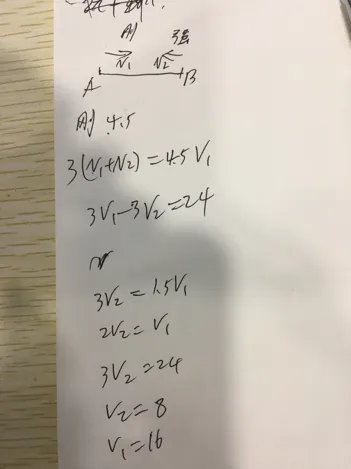 刚 强
V₁ V₂
A B
刚 4.5
3(V₁+V₂)=4.5V₁
3V₁-3V₂=24
3V₂=1.5V₁
2V₂=V₁
3V₂=24
V₂=8
V₁=16